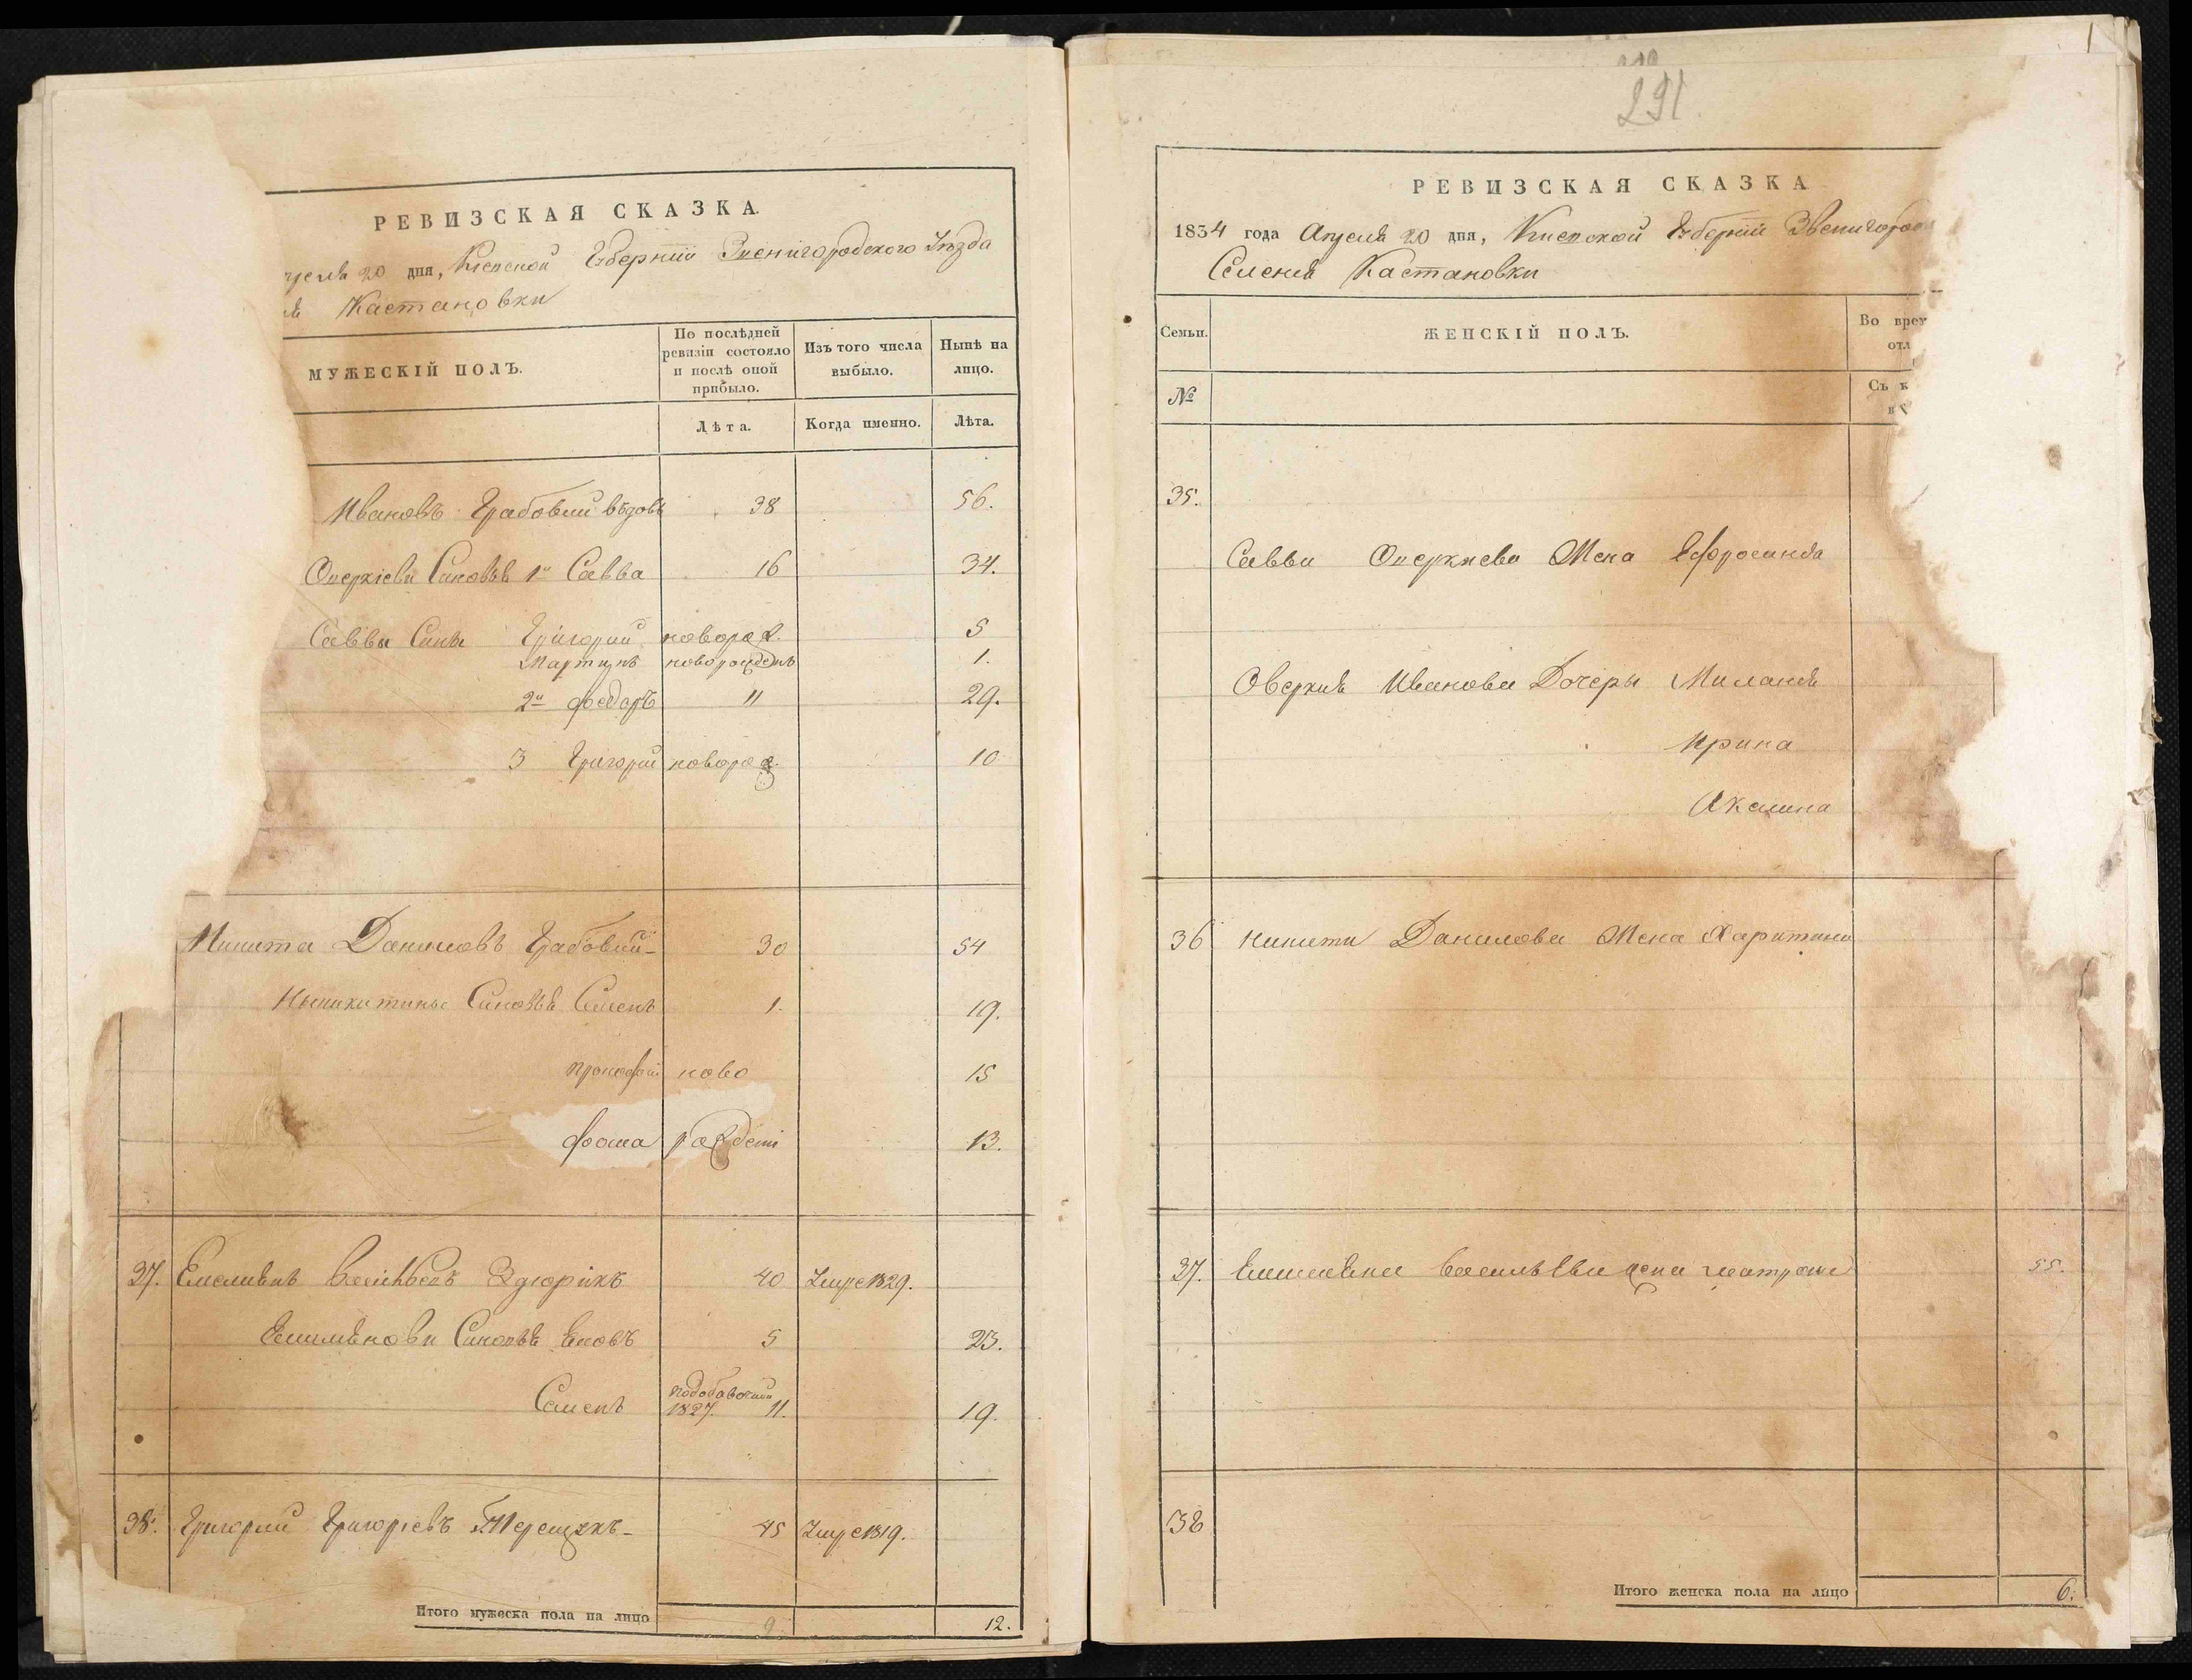 РЕВИЗСКАЯ СКАЗКА.
20 дня, Киевской Губернии Звенигородского Уезда
Кастановки
МУЖЕСКІЙ ПОЛЪ.
По послѣдней ревизіи состояло и послѣ оной прибыло.
Изъ того числа выбыло.
Нынѣ на лицо.
Лѣта.
Когда именно.
Лѣта.
Ивановъ Грабовий 38 56.
Сановья 1й Савва 16 34.
Саввы Сины Григорий новорож. 5
Мартинъ новорожденъ 1.
2й Федоръ 11 29.
3 Григорий новорож. 10
Микита Даниловъ Грабовий 30 54
Синовья Семенъ 1. 19.
Прокофий ново 15
Фома рождени 13.
37. Емелианъ Васильевъ 40 Умре 1829.
Синовья 5 23.
Семенъ 1827. 11. 19.
38. Григорий Григоріевъ 45 Умре 1819.
Итого мужеска пола на лицо 9. 12.
1
291.
РЕВИЗСКАЯ СКАЗКА
1834 года Апреля 20 дня, Киевской Губернии
Селения Кастановки
Семьи.
ЖЕНСКІЙ ПОЛЪ.
Во
№
Съ
35.
Савви Оверкиева Жена Ефросиния
Оверкия Иванова Дочеры Милания
Ирина
Акилина
36 Никити Данилова Жена Харитина
37. Васильева жена Матрона 55.
38
Итого женска пола на лицо 6.